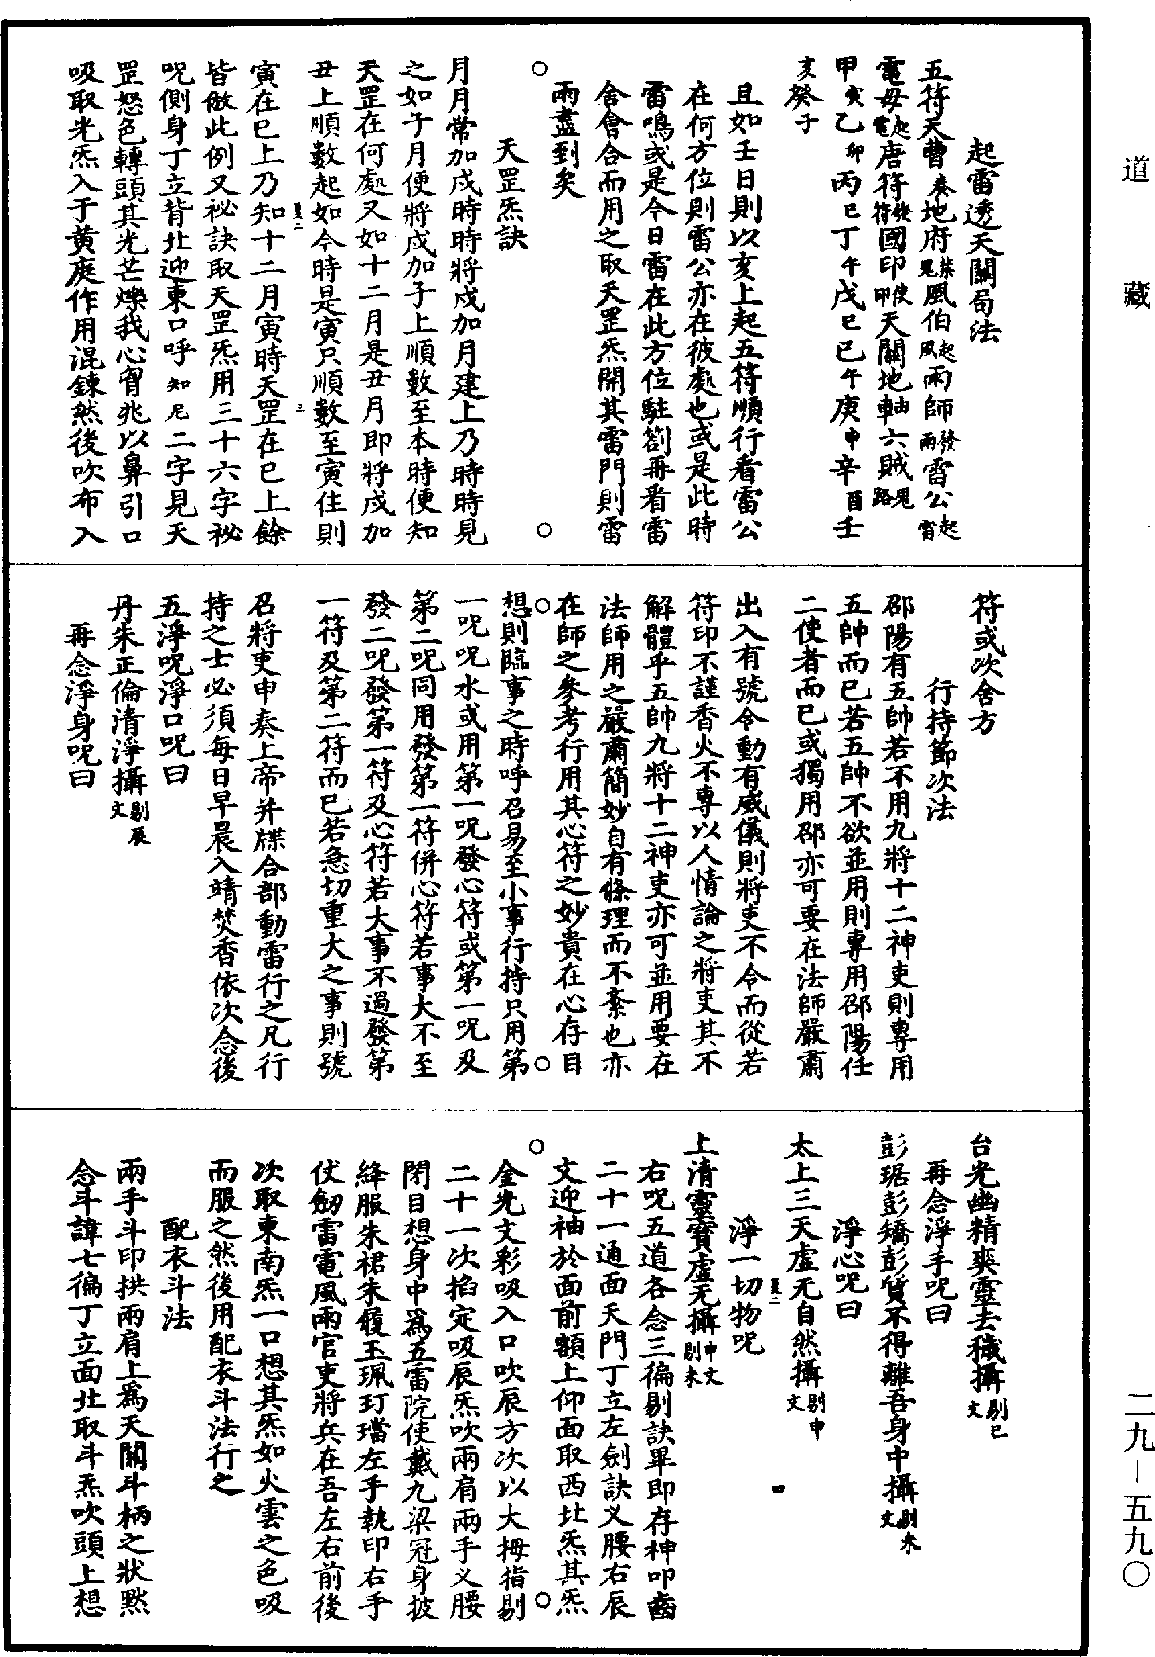 道藏
二九－五九〇
起雷透天關局法
五符天曹奏地府禁鬼風伯起風雨師發雨雷公起雷
電母起電唐符發符國印使印天關地軸六賊鬼路
甲寅乙卯丙巳丁午戊巳巳午庚申辛酉壬
亥癸子
且如壬日則以亥上起五符順行看雷公
在何方位則雷公亦在彼處也或是此時
雷鳴或是今日雷在此方位駐劄再看雷
舍會合而用之取天罡炁開其雷門則雷
雨盡到矣
天罡炁訣
月月常加戌時時將戌加月建上乃時時見
之如子月便將戌加子上順數至本時便知
天罡在何處又如十二月是丑月即將戌加
丑上順數起如今時是寅只順數至寅住則
寅在巳上乃知十二月寅時天罡在巳上餘
皆倣此例又祕訣取天罡炁用三十六字祕
呪側身丁立背北迎東口呼知尼二字見天
罡怒色轉頭其光芒爍我心胷兆以鼻引口
吸取光炁入于黃庭作用混鍊然後吹布入
符或次舍方
行持節次法
邵陽有五帥若不用九將十二神吏則專用
五帥而已若五帥不欲並用則專用邵陽任
二使者而已或獨用邵亦可要在法師嚴肅
出入有號令動有威儀則將吏不令而從若
符印不謹香火不專以人情論之將吏其不
解體乎五帥九將十二神吏亦可並用要在
法師用之嚴肅簡妙自有條理而不紊也亦
在師之參考行用其心符之妙貴在心存目
想則臨事之時呼召易至小事行持只用第
一呪呪水或用第一呪發心符或第一呪及
第二呪同用發第一符併心符若事大不至
發二呪發第一符及心符若大事不過發第
一符及第二符而已若急切重大之事則號
召將吏申奏上帝并牒合部動雷行之凡行
持之士必須每日早晨入靖焚香依次念後
五淨呪淨口呪曰
丹朱正倫清淨攝剔辰文
再念淨身呪曰
台光幽精爽靈去穢攝剔巳文
再念淨手呪曰
彭琚彭矯彭質不得離吾身中攝剔未文
淨心呪曰
太上三天虛无自然攝剔申文
淨一切物呪
上清靈寶虛无攝申文剔未
右呪五道各念三徧剔訣畢即存神叩齒
二十一通面天門丁立左劍訣义腰右辰
文迎袖於面前額上仰面取西北炁其炁
金光文彩吸入口吹辰方次以大拇指剔
二十一次掐定吸辰炁吹兩肩兩手义腰
閉目想身中爲五雷院使戴九梁冠身披
絳服朱裙朱履玉珮玎璫左手執印右手
伏劒雷電風雨官吏將兵在吾左右前後
次取東南炁一口想其炁如火雲之色吸
而服之然後用配衣斗法行之
配衣斗法
兩手斗印拱兩肩上爲天關斗柄之狀黙
念斗諱七徧丁立面北取斗炁吹頭上想